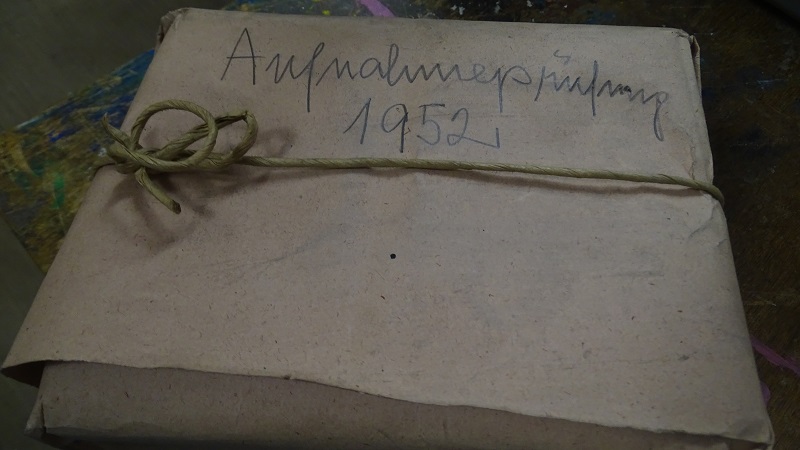 Aufnahmeprüfung
1952